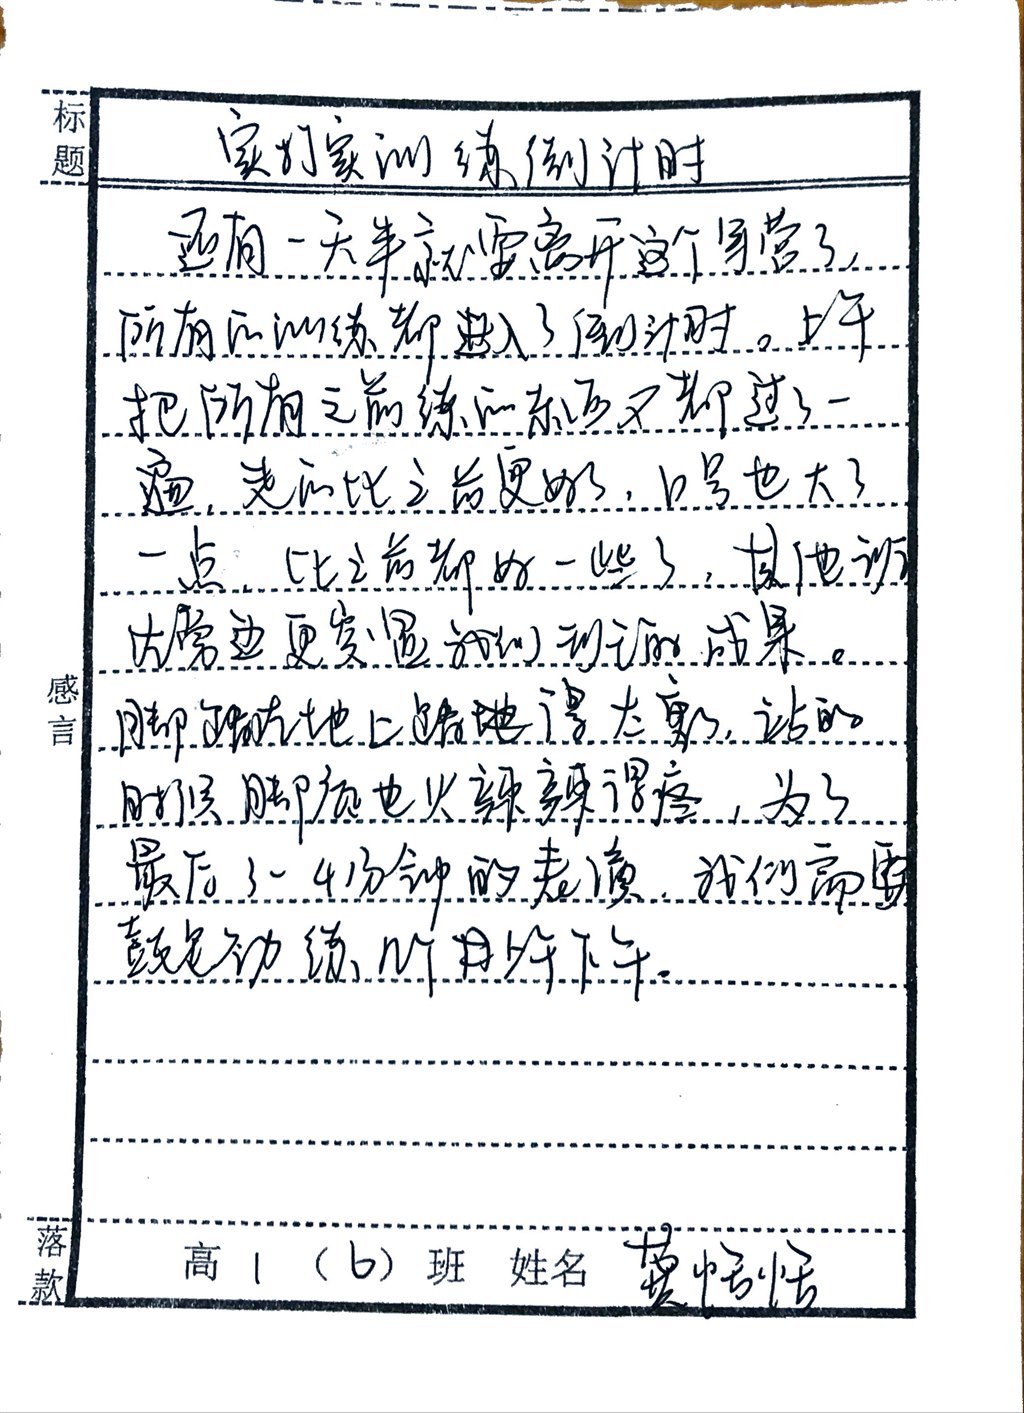 标题
实打实训练倒计时
还有一天半就要离开这个军营了,
所有的训练都进入了倒计时。上午
把所有之前练的东西又都过了一
遍,走的比之前更好了,口号也大了
一点,比之前都好一些了,其他
更 我们 的成果。
感言
脚 在地上 地得太 了,站的
时候脚底也火辣辣得疼,为了
最后3-4分钟的表演,我们需要
鼓足劲练 个 上午下午。
落款
高1(6)班 姓名 莫恬恬